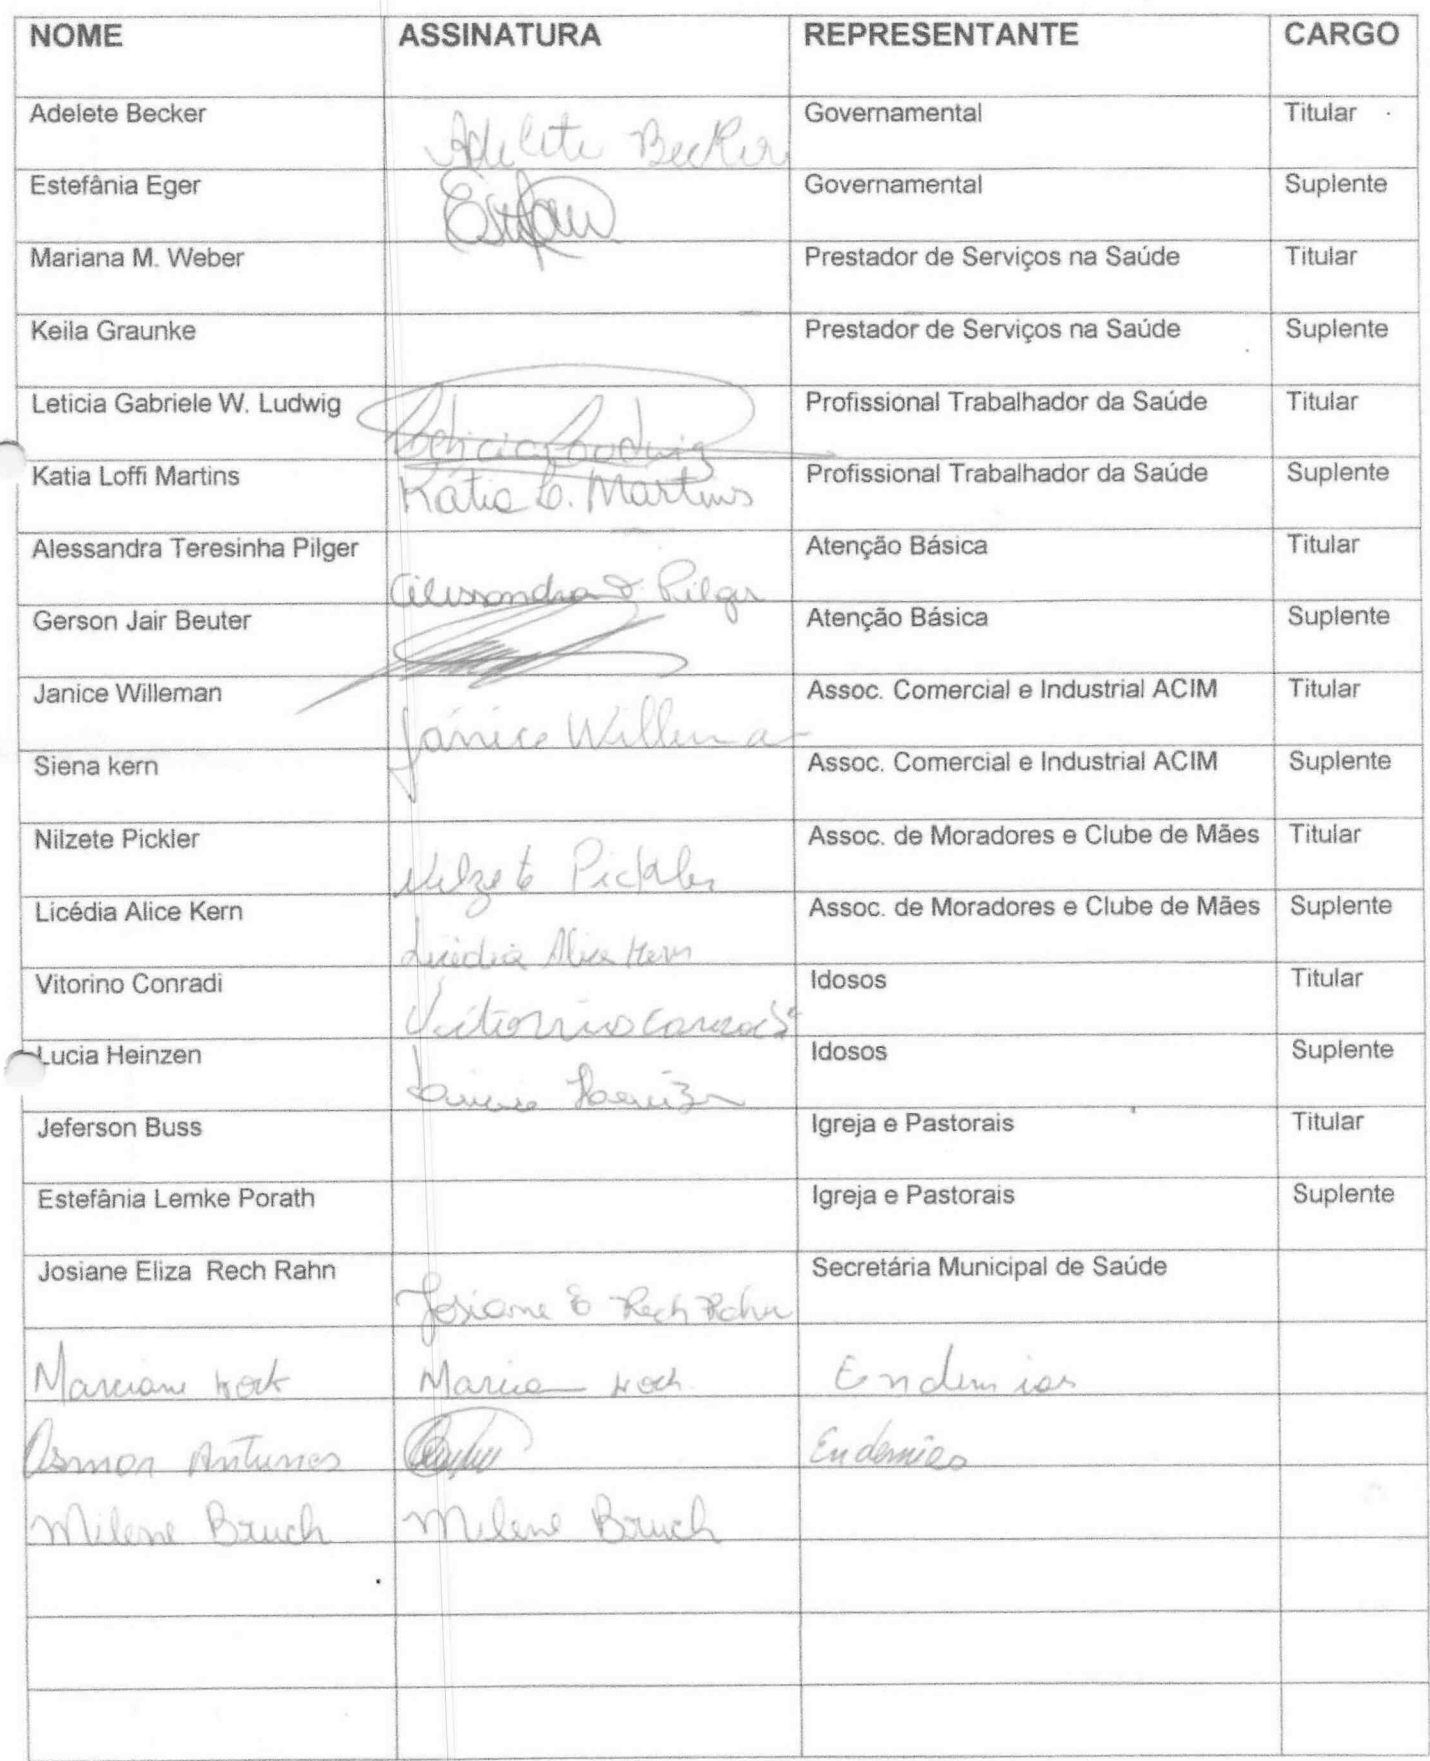 NOME ASSINATURA REPRESENTANTE CARGO
Adelete Becker Adelete Becker Governamental Titular
Estefânia Eger Estefân Governamental Suplente
Mariana M. Weber Prestador de Serviços na Saúde Titular
Keila Graunke Prestador de Serviços na Saúde Suplente
Leticia Gabriele W. Ludwig Leticia Ludwig Profissional Trabalhador da Saúde Titular
Katia Loffi Martins Katia L. Martins Profissional Trabalhador da Saúde Suplente
Alessandra Teresinha Pilger Alessandra T. Pilger Atenção Básica Titular
Gerson Jair Beuter Atenção Básica Suplente
Janice Willeman Janice Willema Assoc. Comercial e Industrial ACIM Titular
Siena kern Assoc. Comercial e Industrial ACIM Suplente
Nilzete Pickler Nilzete Pickler Assoc. de Moradores e Clube de Mães Titular
Licédia Alice Kern Licédia Alice Kern Assoc. de Moradores e Clube de Mães Suplente
Vitorino Conradi Vitorino Conradi Idosos Titular
Lucia Heinzen Idosos Suplente
Jeferson Buss Igreja e Pastorais Titular
Estefânia Lemke Porath Igreja e Pastorais Suplente
Josiane Eliza Rech Rahn Josiane E Rech Rahn Secretária Municipal de Saúde
Marciane Koch Koch Endemias
Osmar Antunes Endemias
Milene Bruch Milene Bruch